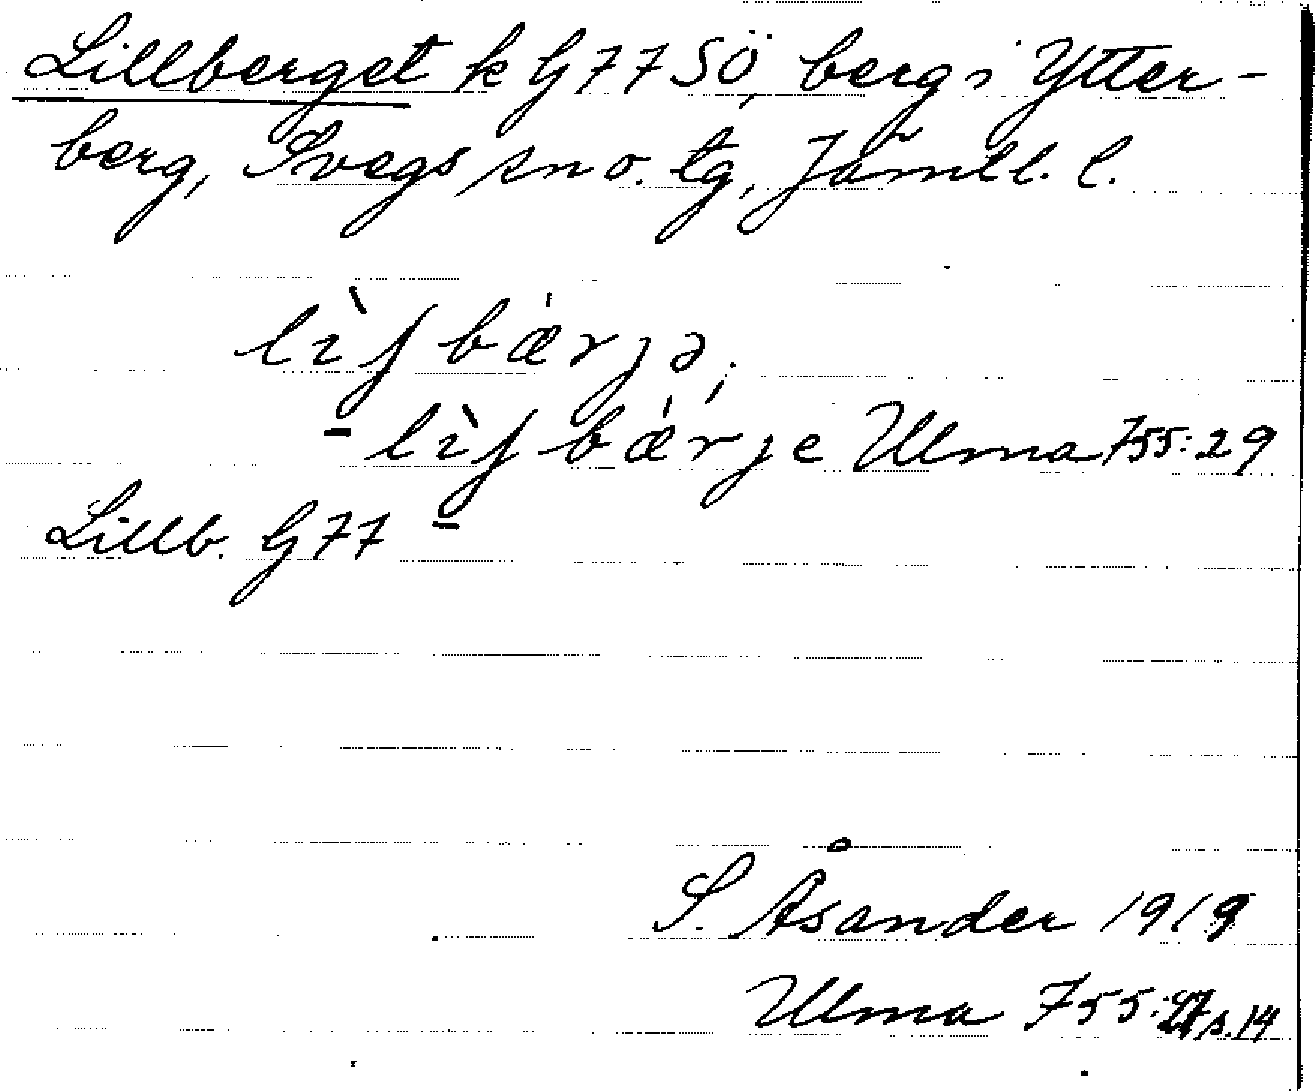 Lillberget k G77SÖ, berg i Ytter-
berg, Svegs sn o. tg, Jämtl. l.
lìʃbæ̀rjə;
- lìʃbæ̀rje Ulma 755:29
Lillb. G77 -
S. Åsander 1919
Ulma 755: s.14